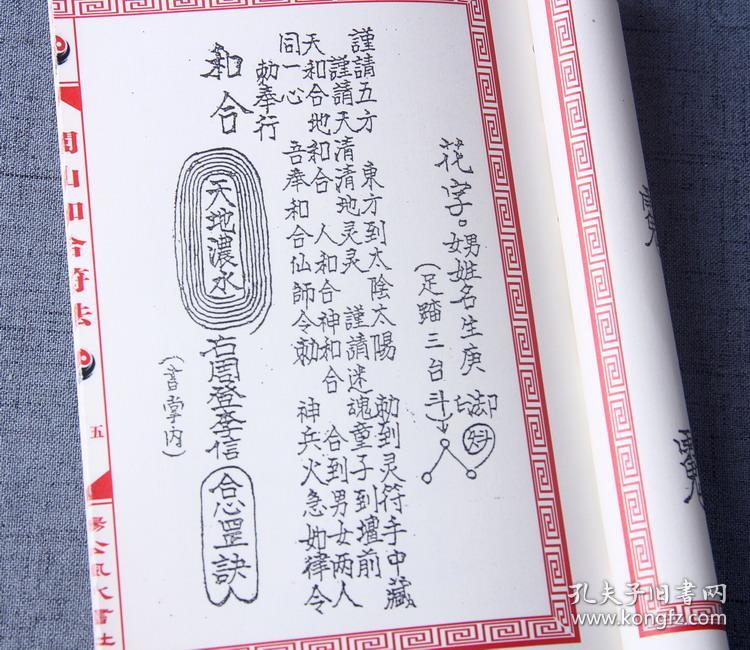 花字。男女姓名生庚
(足踏三台斗)
謹請五方 東方到太陰太陽 勅到灵符手中藏
謹請天清清地灵灵 謹請迷魂童子到壇前
天和合地和合 人和合神和合 合到男女两人
同一心 吾奉和合仙師令勅 神兵火急如律令
勅奉行
和合
天地濃水
右周登李信
(書掌内)
山和合符法
五
孔夫子旧书网
www.kongfz.com